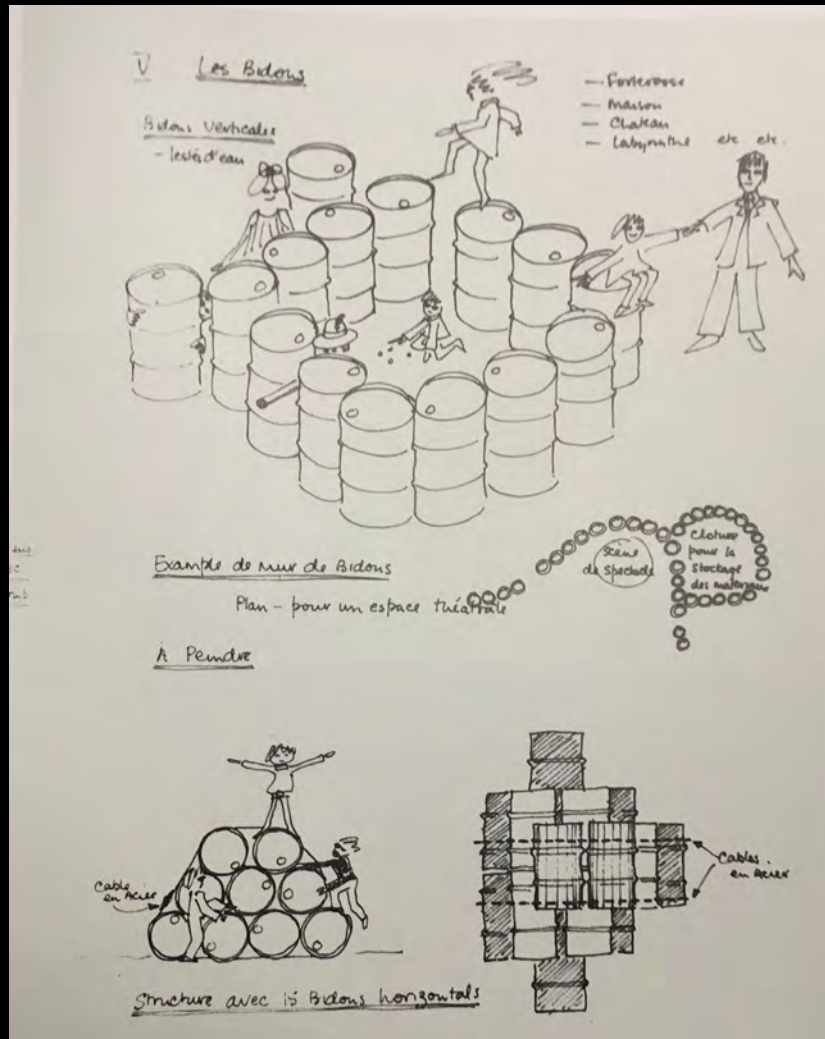 V Les Bidons
Bidons Verticales
- lestés d'eau
- Forteresse
- Maison
- Chateau
- Labyrinthe etc etc.
Example de mur de Bidons
Plan - pour un espace théâtrale
Scène
de Spectacle
Cloture
pour la
Stockage
des materiaux
À Peindre
Cable
en Acier
Cables
en Acier
Structure avec 15 Bidons horizontals